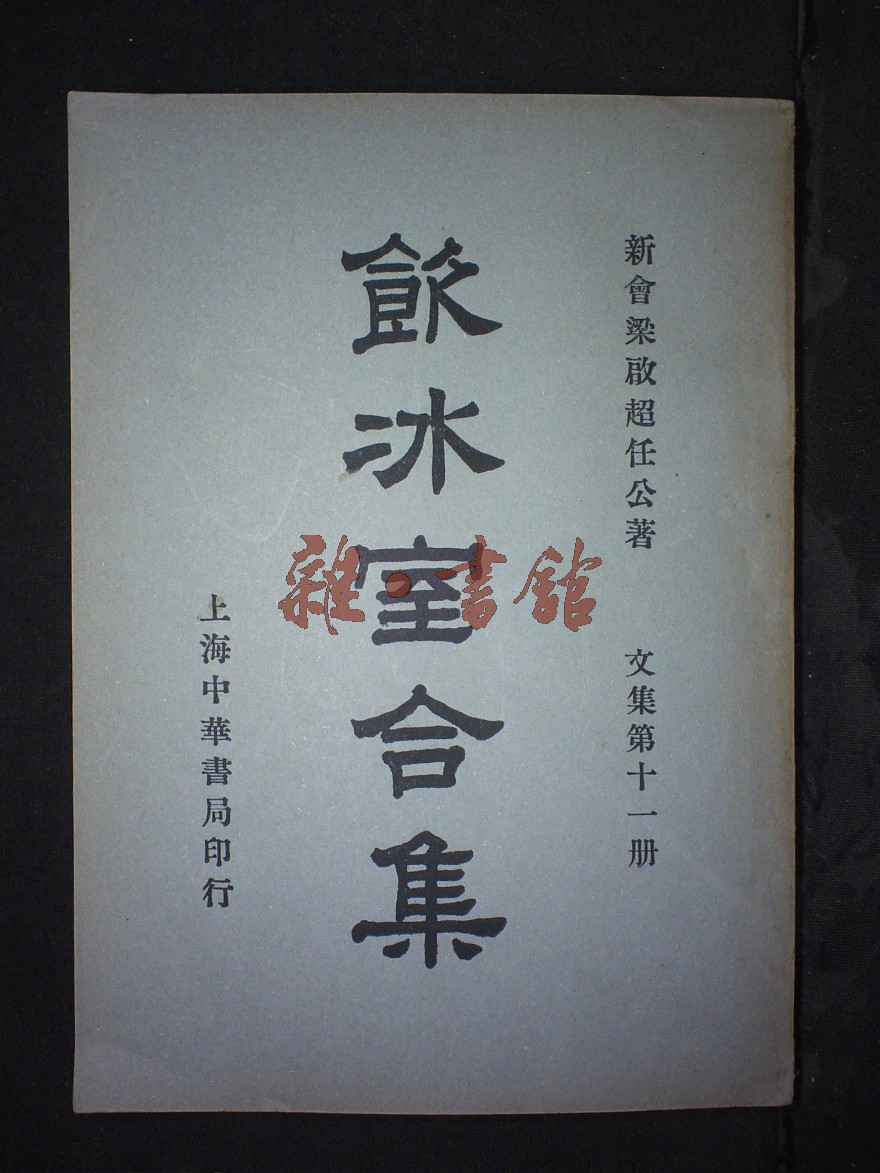 新會梁啟超任公著 文集第十一册
飲冰室合集
上海中華書局印行
雜·書館